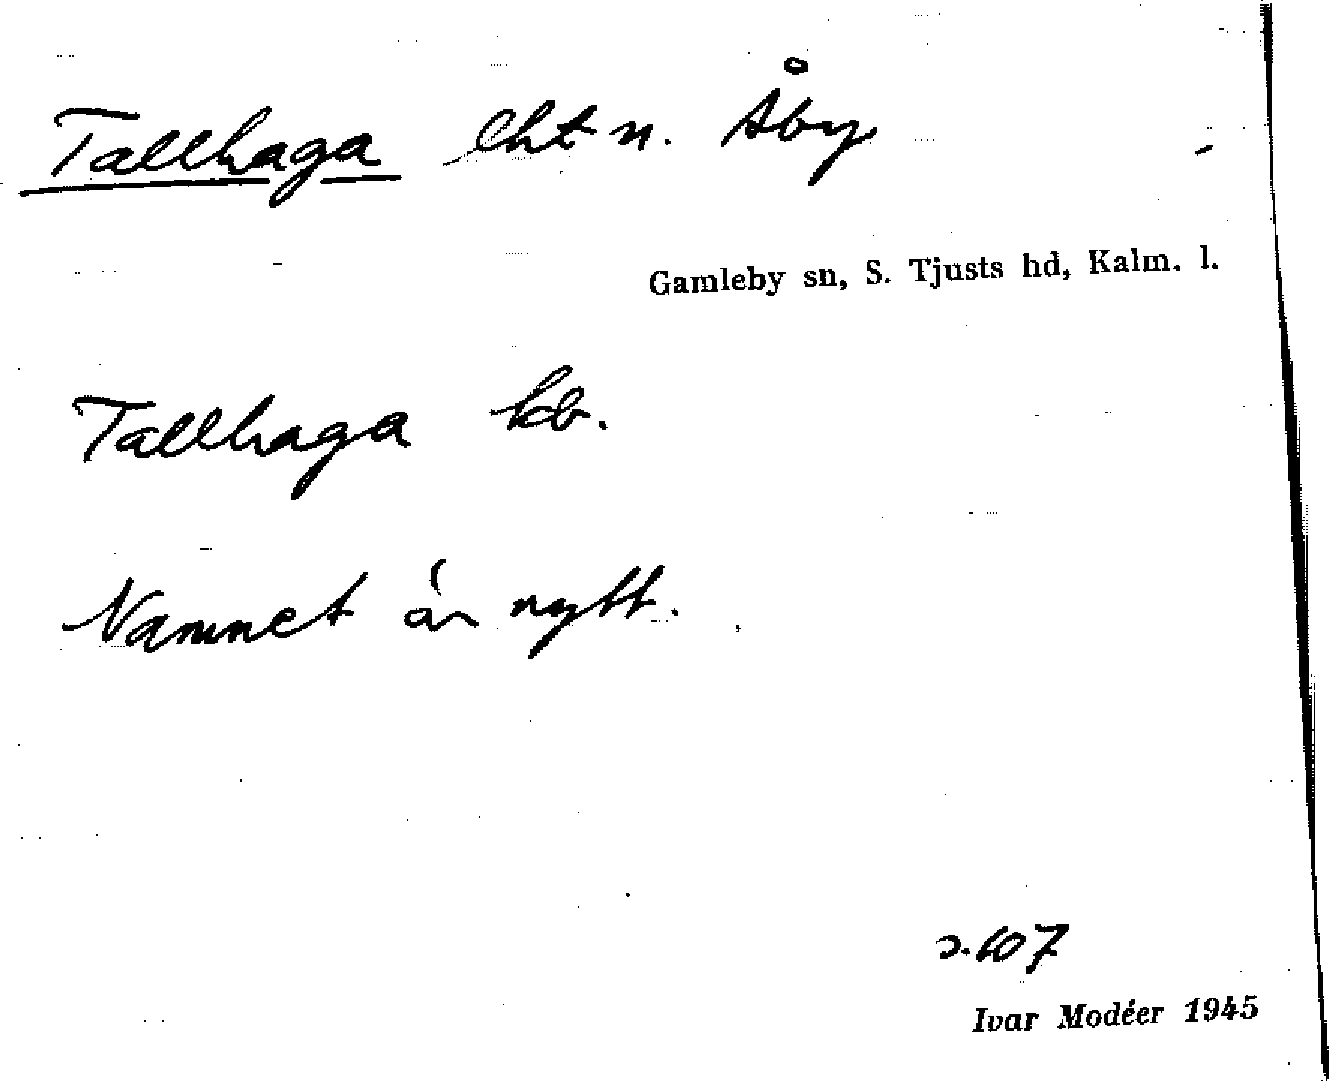 Tallhaga lht n. Åby
Gamleby sn, S. Tjusts hd, Kalm. l.
Tallhaga kb.
Namnet är nytt.
s. 607
Ivar Modéer 1945